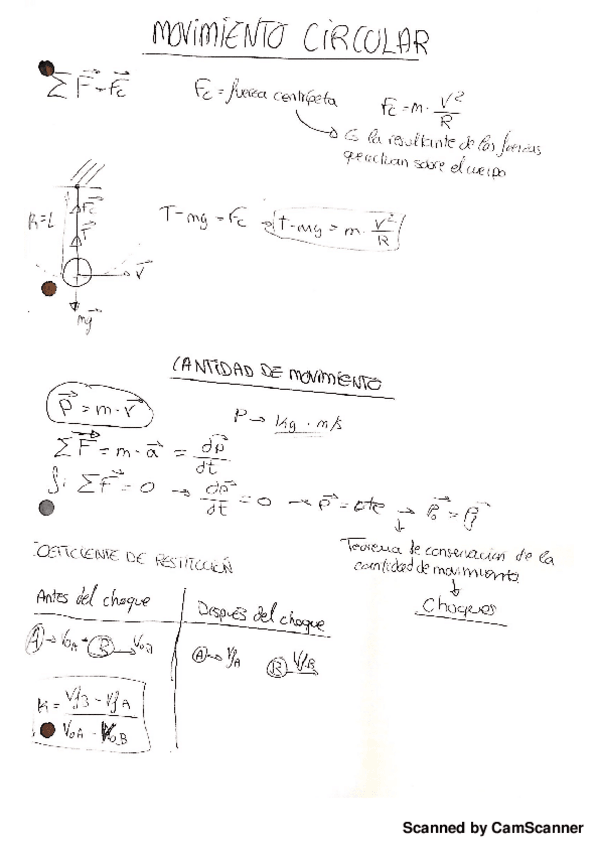 MOVIMIENTO CIRCULAR
ΣF⃗ = F⃗c
Fc = fuerza centrípeta
Fc = m · V²/R
Es la resultante de las fuerzas
que actuan sobre el cuerpo
R = L
Fc
T
V⃗
mg⃗
T - mg = Fc → T - mg = m · V²/R
CANTIDAD DE MOVIMIENTO
p⃗ = m · v⃗
P → kg · m/s
ΣF⃗ = m · a⃗ = dp⃗/dt
Si ΣF⃗ = 0 → dp⃗/dt = 0 → p⃗ = cte → P⃗o = P⃗f
Teorema de conservación de la
cantidad de movimiento
Choques
COEFICIENTE DE RESTITUCIÓN
Antes del choque
Después del choque
A → VoA B → VoB
A → VfA B → VfB
K = VfB - VfA / VoA - VoB
Scanned by CamScanner